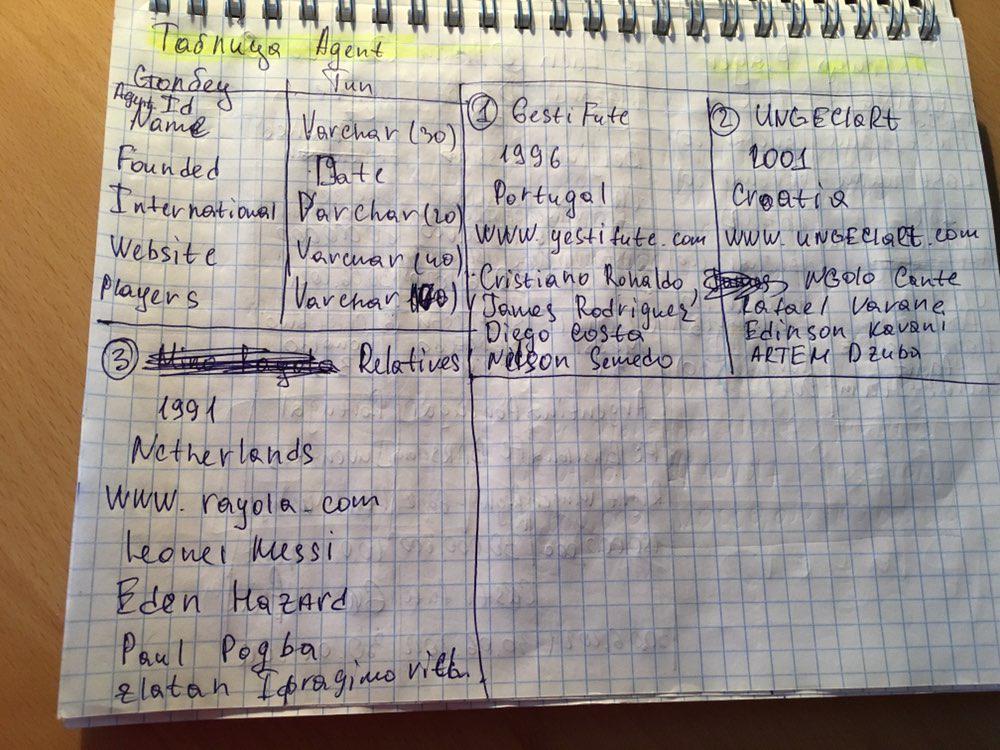 Таблица Agent
Столбец Тип
Agent Id
Name Varchar (30)
Founded Date
International Varchar (20)
Website Varchar (40)
Players Varchar (100)
① GestiFute
1996
Portugal
WWW.gestifute.com
Cristiano Ronaldo,
James Rodriguez
Diego Costa
Nelson Semedo
② UNGECIARt
2001
Croatia
WWW.UNGECIARt.com
NGolo Cante
Rafael Varane
Edinson Kavani
ARTEM Dzuba
③ Relatives
1991
Netherlands
WWW.rayola.com
Leonel Messi
Eden Hazard
Paul Pogba
Zlatan Ibragimovitch